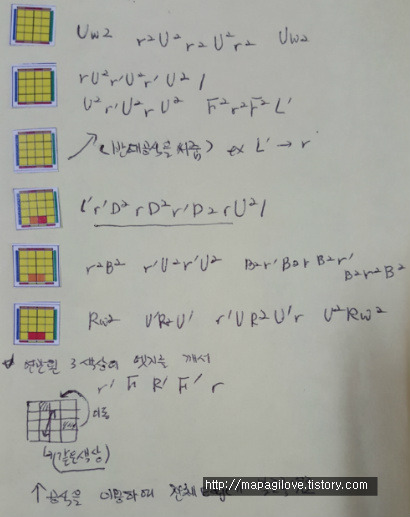 Uw2 r²U² r2 U²r² Uw2
rU²r'U²r' U² l
U²r'U²rU² F²r²F² L'
(반대공식을 써줌) ex L' → r
l'r'D²rD²r'D2rU²l
r²B² r'U²r'U² B²r'B²rB²r'
B²r²B²
Rw² U'R2U' r'UR²U'r U²Rw²
연관된 3색상의 엣지를 깨서
r' F R' F' r
이동
(같은색상)
↑공식을 이용하여 전체
http://mapagilove.tistory.com